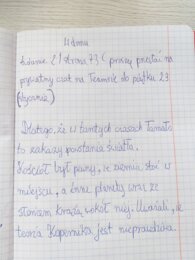 W domu
Zadanie 2 / strona 73 ( proszę przesłać na
poprawny czat na Teamsie do piątku 23
stycznia)
Dlatego, że w tamtych czasach łamało
to zakazy powstania świata.
Kościół był pewny, że ziemia stoi w
miejscu, a inne planety wraz ze
słońcem krążą wokół niej. Uważali, że
teoria Kopernika jest nieprawdziwa.